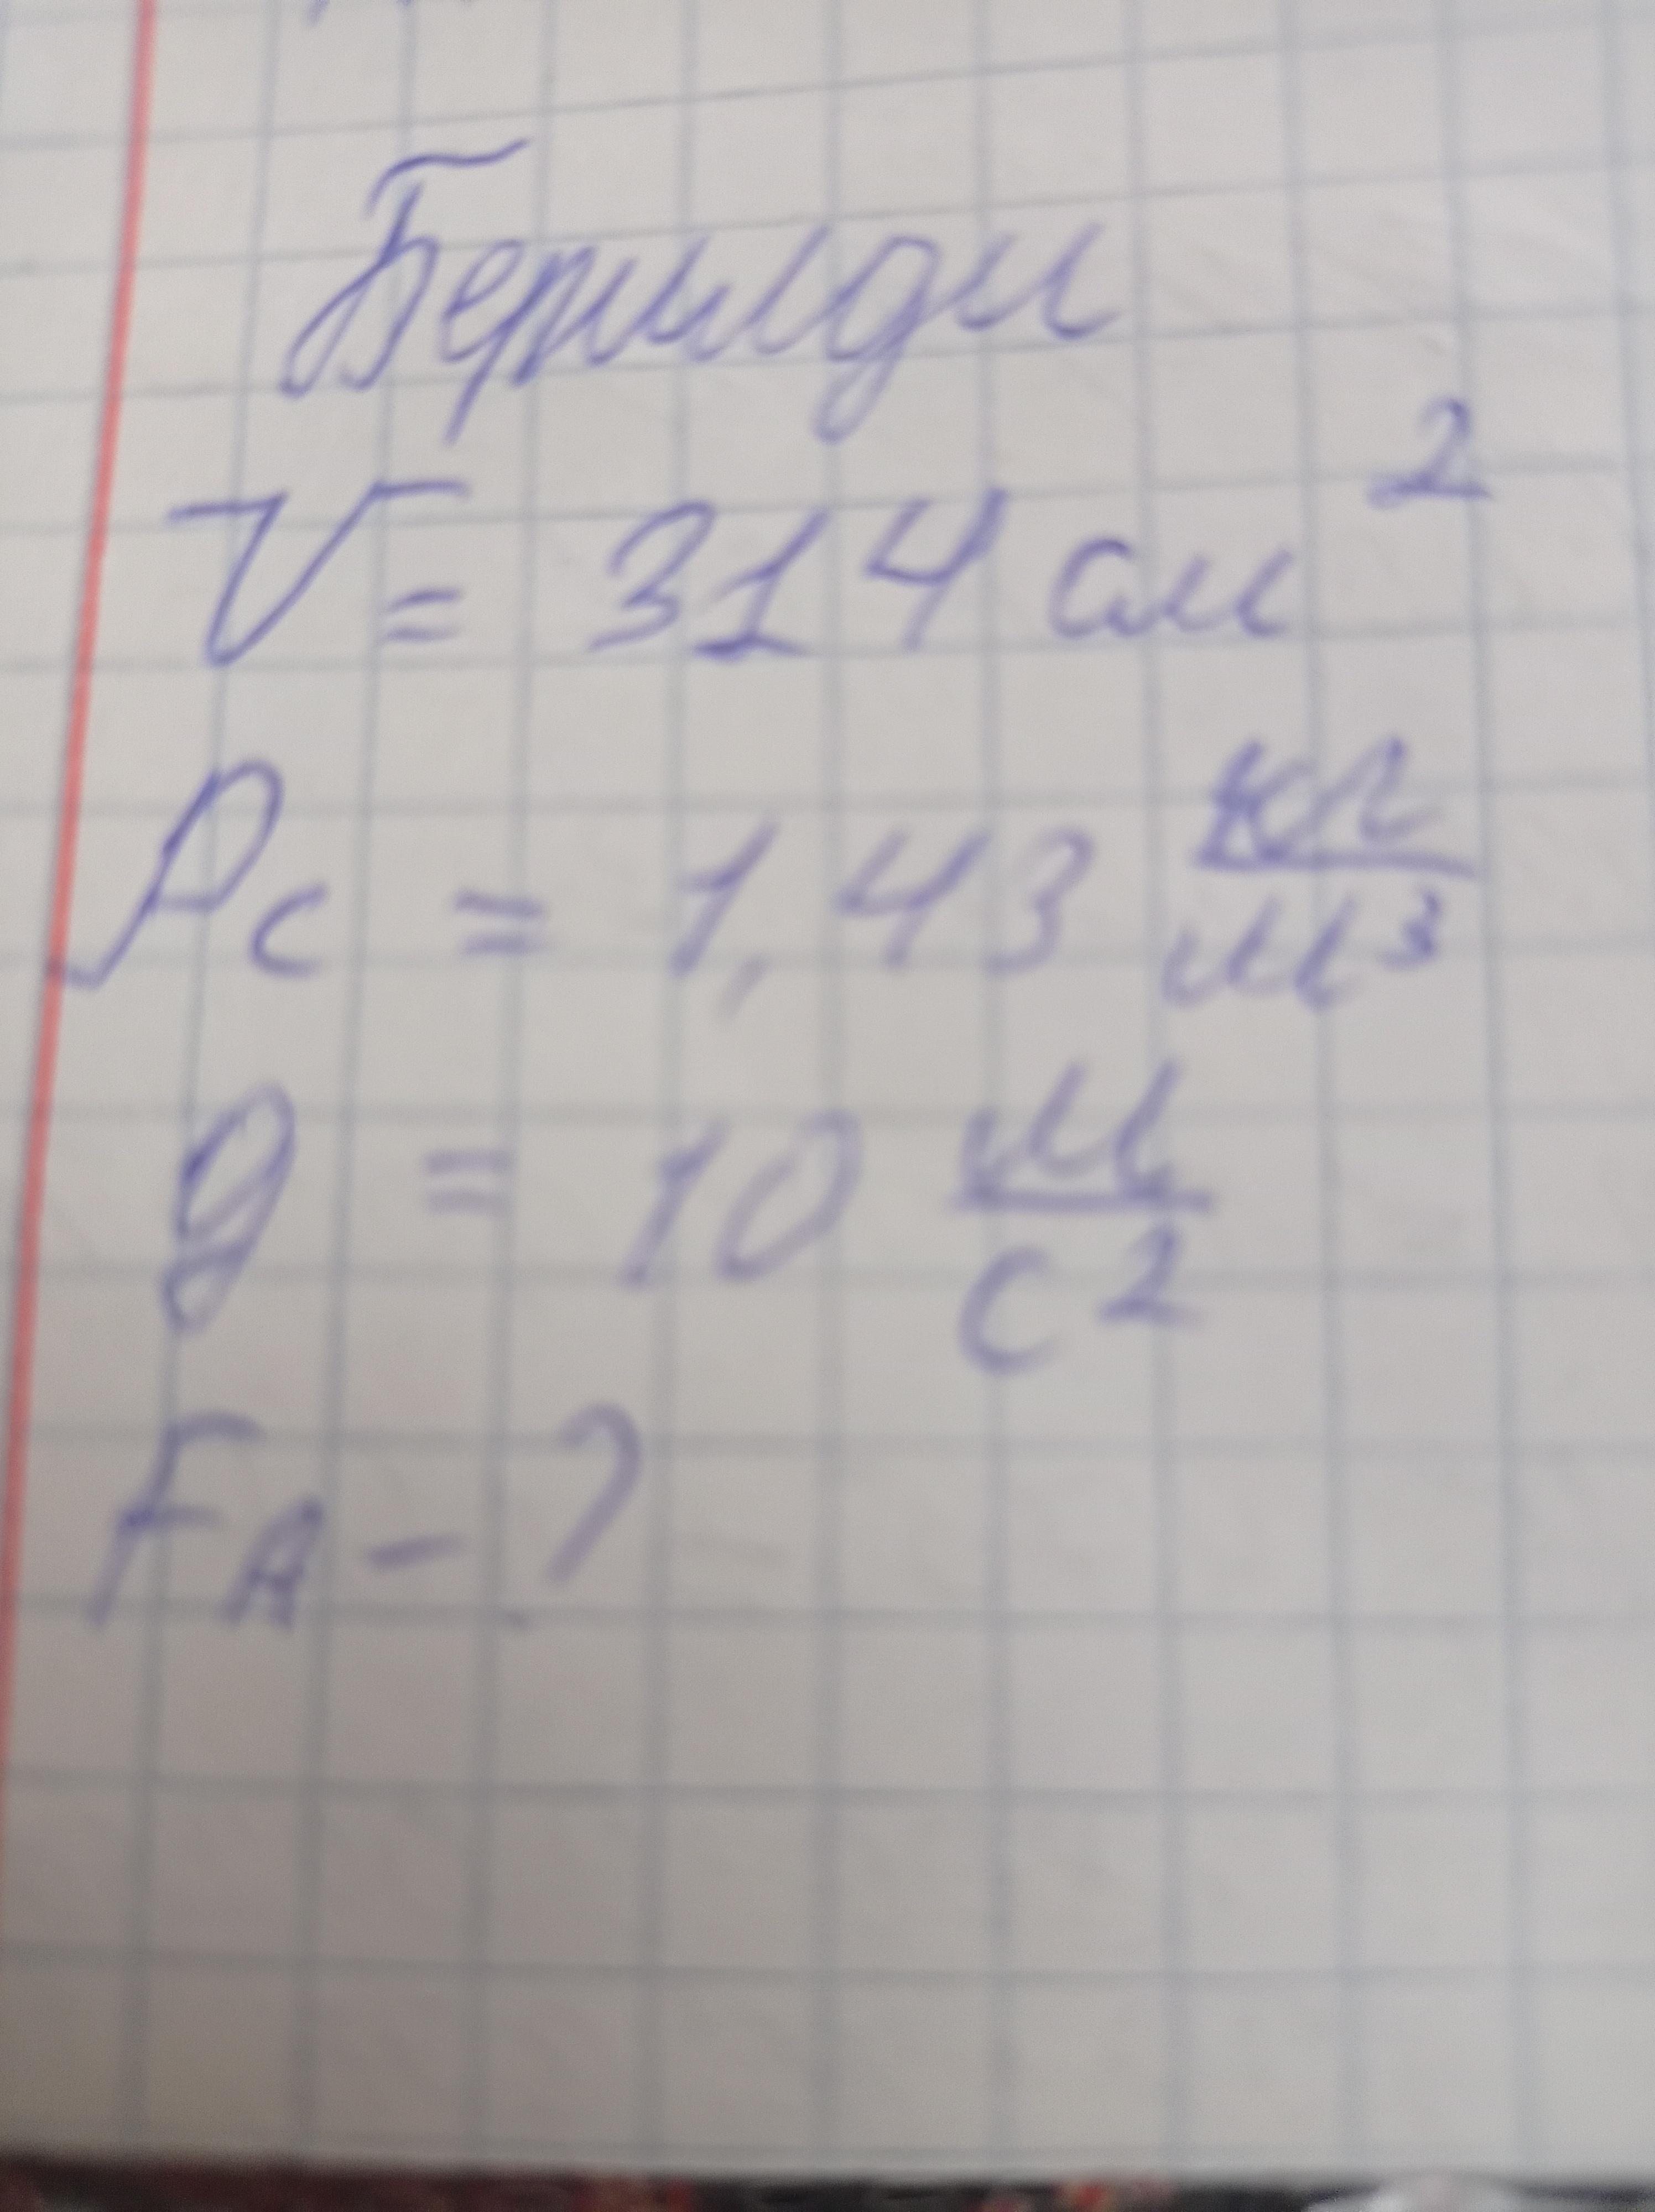 Берилди
V = 314 см²
ρс = 1,43 кг/м³
g = 10 м/с²
FA - ?